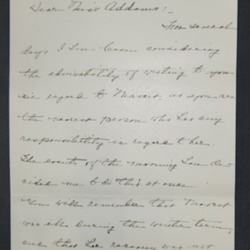 Dear Miss Addams:-
For several
days I have been considering
the advisability of writing to you
in regard to Marcet, as you are
the nearest person who has any
responsibility in regard to her.
The events of the morning have de-
cided me to do this at once.
You will remember that Marcet
was ill during the winter term,
and that her recovery was not